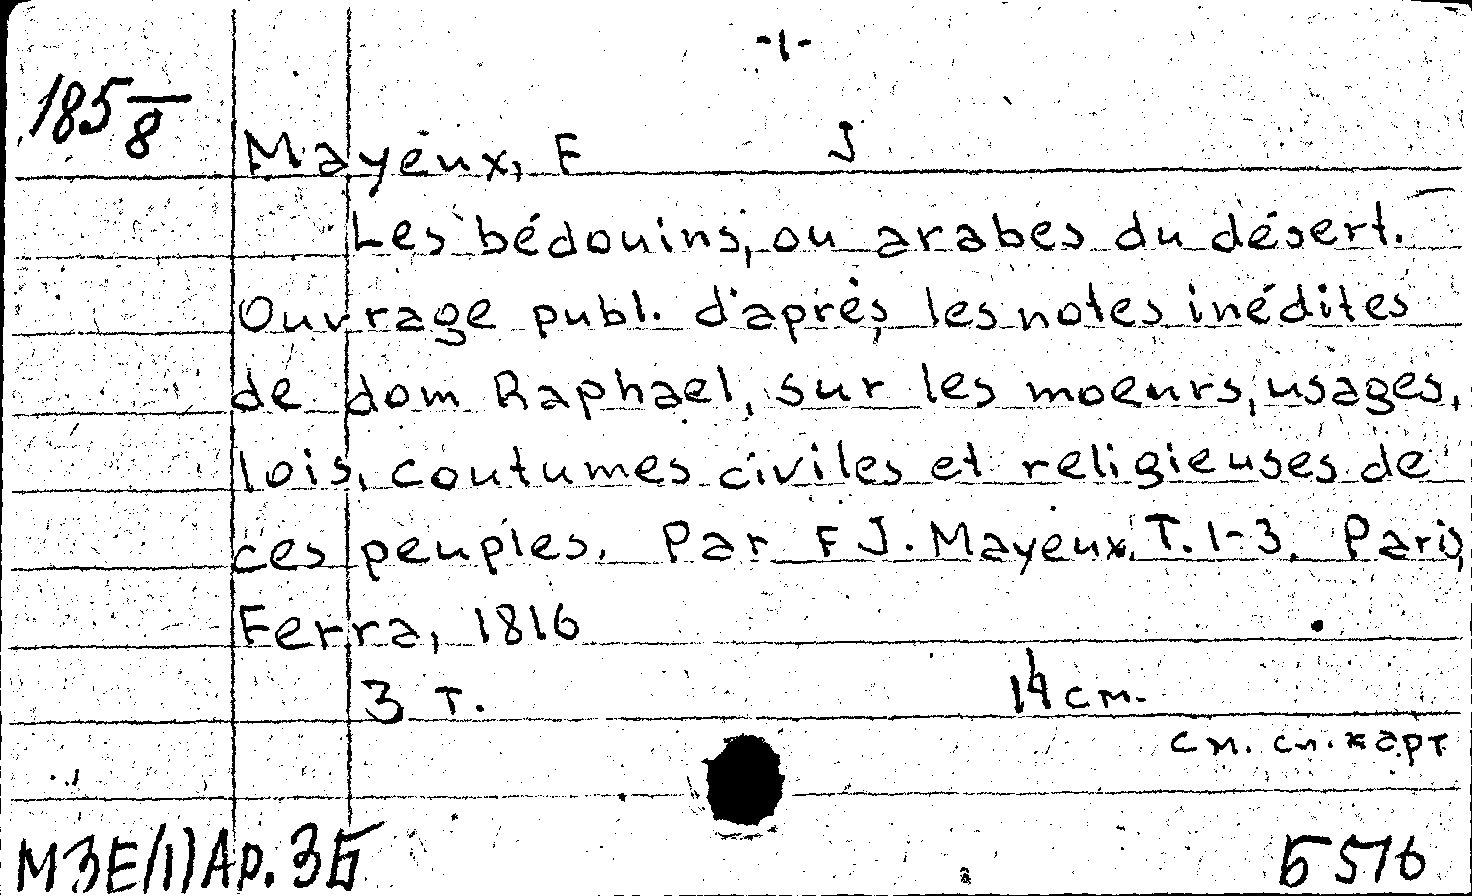 -1-
185/8
Mayeux, F J
Les bédouins, ou arabes du désert.
Ouvrage publ. d'après les notes inédites
de dom Raphael, sur les moeurs, usages,
lois, coutumes civiles et religieuses de
ces peuples. Par F J. Mayeux. T. 1-3. Paris,
Ferra, 1816
3 т. 14 см.
см. сл. карт
МЗЕ/1)Ар. 3Б Б 576